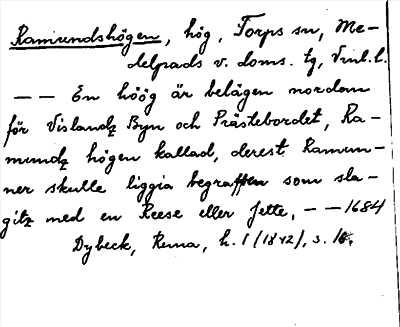 Ramundshögen, hög, Torps sn, Me-
delpads v. doms. tg, Vnl. l.
— — En höög är belägen nordan
för Vislandz Byn och Prästebordet, Ra-
mundz högen kallad, derest Ramun-
ner skulle liggia begraffwen som sla-
gitz med en Reese eller Jette, — — 1684
Dybeck, Runa, h. 1 (1842), s.